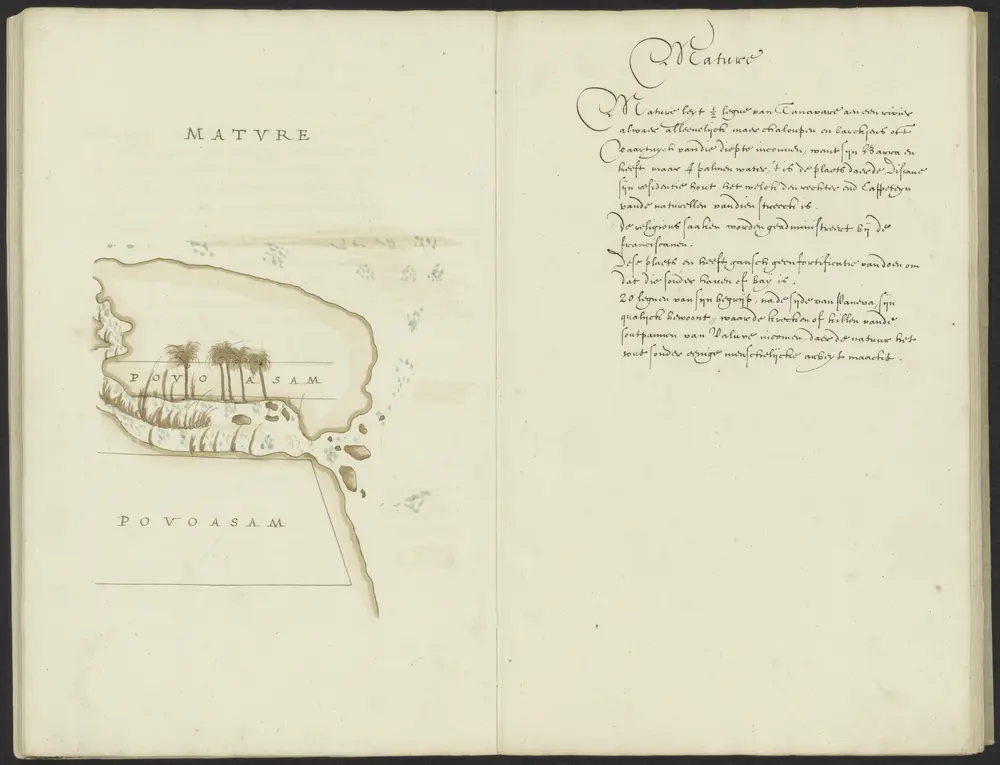 MATVRE
POVOASAM
POVOASAM
Mature
Mature leyt ½ legue van Tanavare aen een rivier
alwaer alleenelijck maer chaloupen en barckjens oft
vaartuych van die diepte incomen, want sijn Barra en
heeft maar 4 palmen water, 't is de plaets daer de Disave
sijn residentie hout het welck den rechter end Cappeteyn
vande naturellen van dien streeck is.
De religious saaken worden geadministreert bij de
franciscanen.
Dese plaets en heeft gansch geen fortificatie van doen om
dat die sonder haven of bay is.
20 leguen van sijn begrijp, na de sijde van Paneva, sijn
qualijck bewoont, waar de krecken of killen vande
soutpannen van Valave incomen daer de natuur het
sout sonder eenige menschelijcke arbeyt maackt.